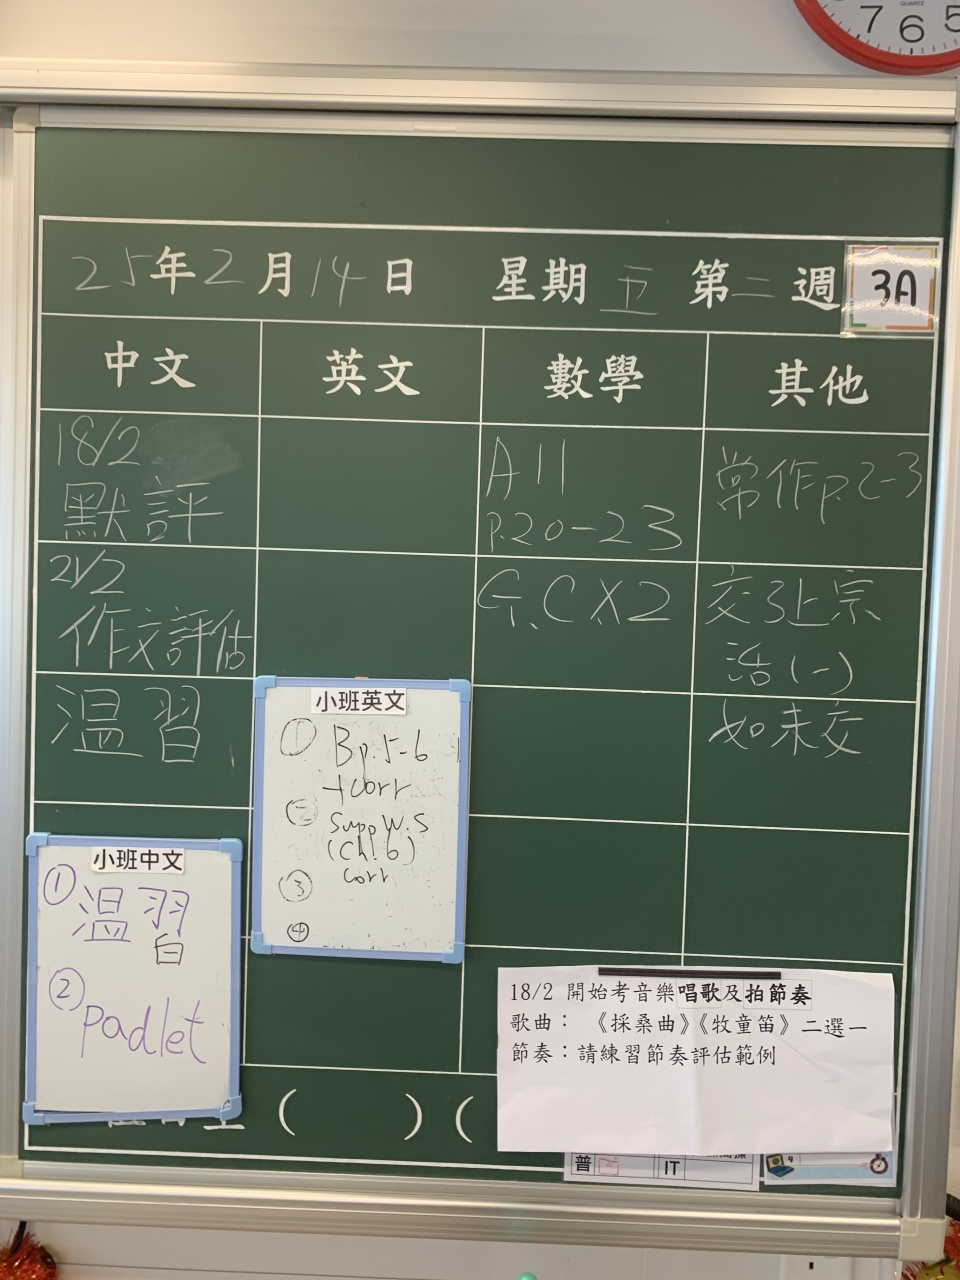 QUARTZ
7 6 5
25年2月14日 星期五 第二週 3A
中文 英文 數學 其他
18/2
默評
21/2
作文評估
溫習
A11
P.20-23
G.C.X2
常作p.2-3
交3上宗
活(一)
如未交
小班英文
① Bp.5-6
+corr
② Supp W.S
(Ch.6)
③ corr
④
小班中文
① 溫習
② padlet
18/2 開始考音樂唱歌及拍節奏
歌曲：《採桑曲》《牧童笛》二選一
節奏：請練習節奏評估範例
( ) (
普 IT